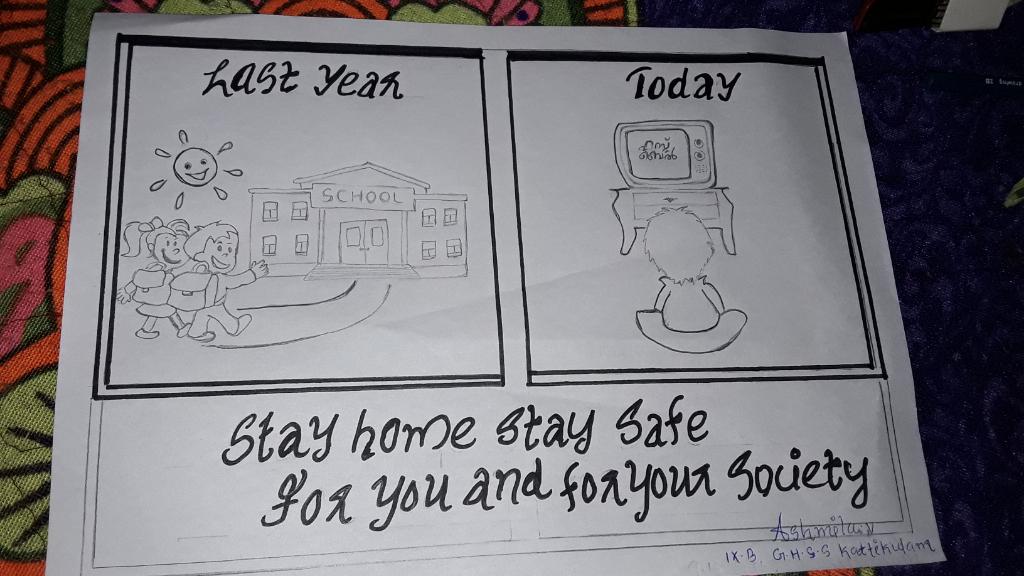 Last Year
Today
SCHOOL
ഫസ്റ്റ്
ബെൽ
Stay home stay safe
for you and for your Society
IX-B, G.H.S.S Kattikulam